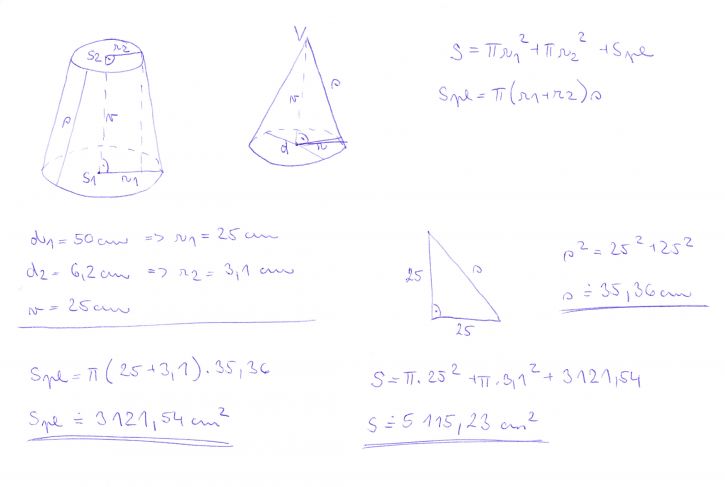 S2 r2
s
v
S1 r1
V
v
s
d r
S = πr1² + πr2² + Spl
Spl = π(r1+r2)s
d1 = 50 cm => r1 = 25 cm
d2 = 6,2 cm => r2 = 3,1 cm
v = 25 cm
25
s
25
s² = 25² + 25²
s ≐ 35,36 cm
Spl = π(25+3,1)·35,36
Spl ≐ 3121,54 cm²
S = π·25² + π·3,1² + 3121,54
S ≐ 5 115,23 cm²